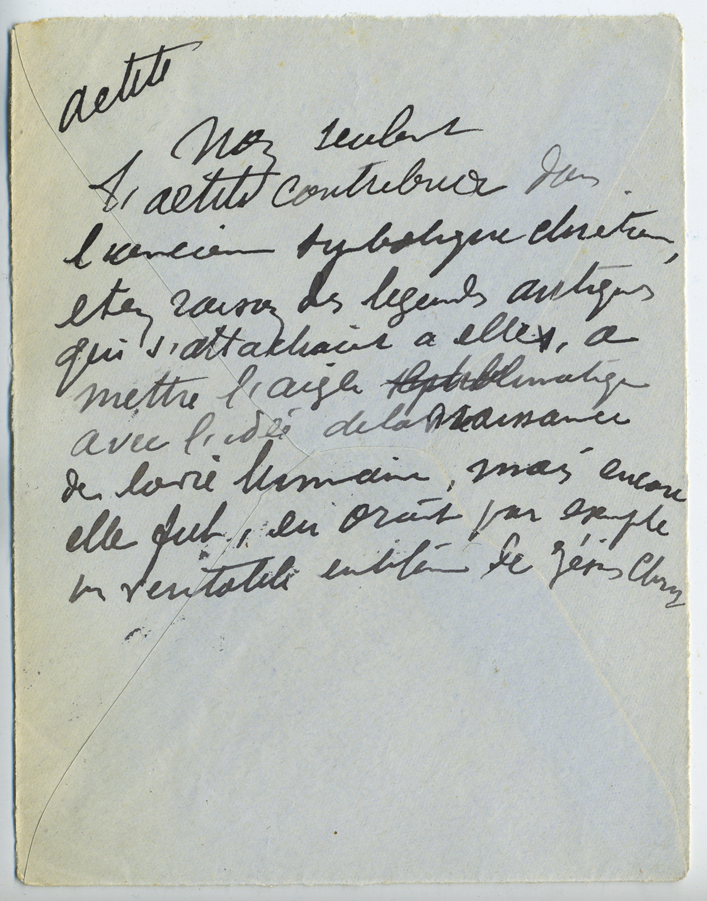 aetite
Non seulent
l'aetite contribua dans
l'ancienn symbolique chretien,
et en raison des legends antiques
qui s'attachaient a elles, a
mettre l'aigle
avec l'idée de la Naissance
de la vie humaine, mais encore
elle fut, en orient par exemple
un veritable emblêm de Jésus Chris